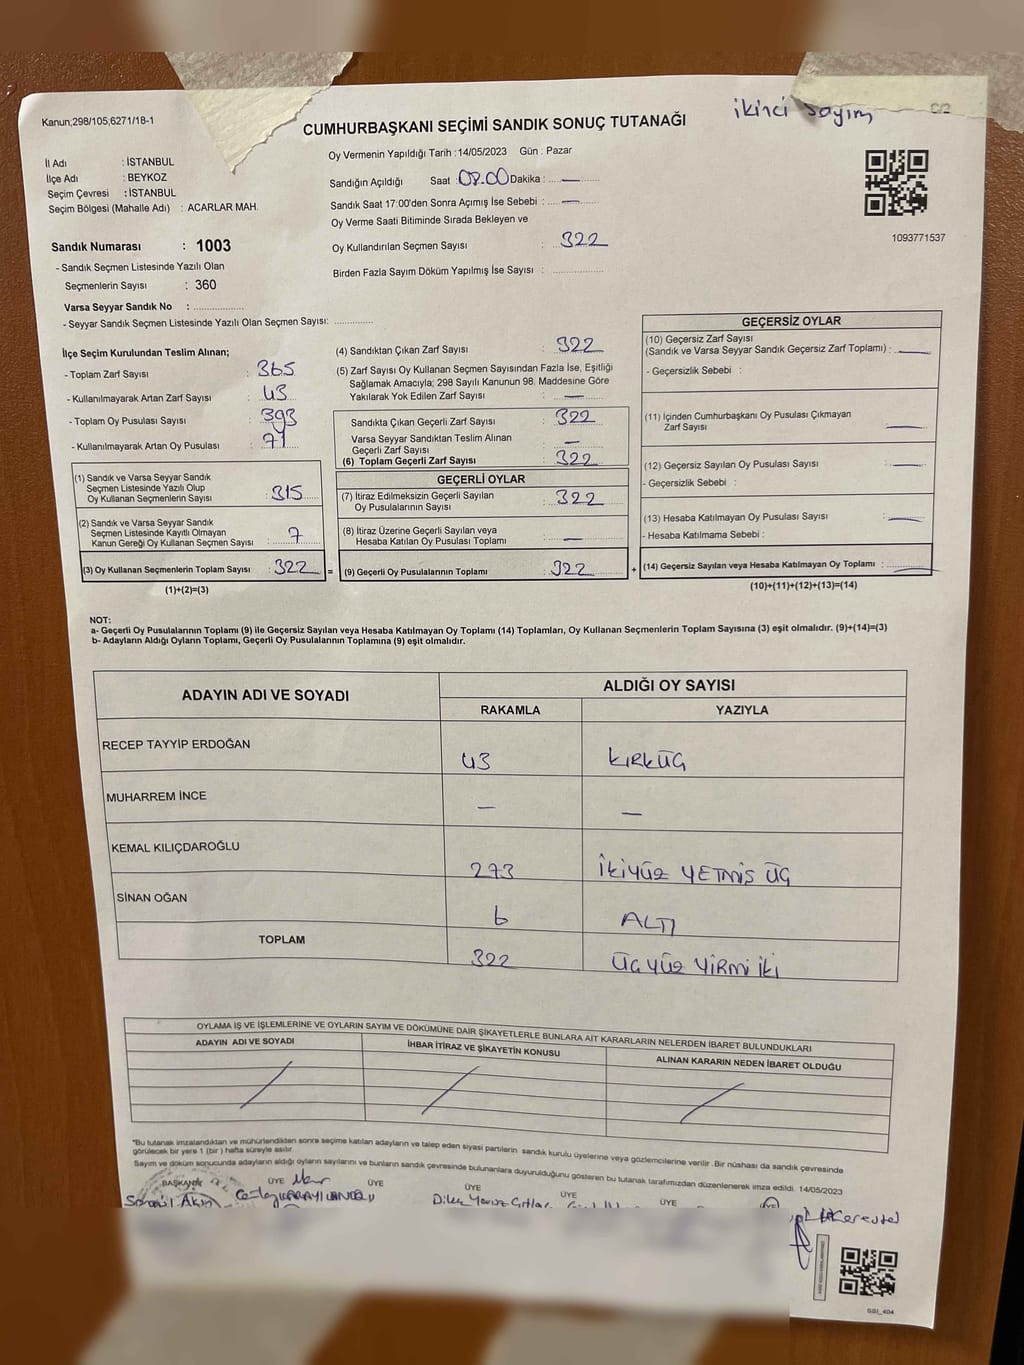 Kanun;298/105;6271/18-1
ikinci sayım
CUMHURBAŞKANI SEÇİMİ SANDIK SONUÇ TUTANAĞI
İl Adı : İSTANBUL
İlçe Adı : BEYKOZ
Seçim Çevresi : İSTANBUL
Seçim Bölgesi (Mahalle Adı) : ACARLAR MAH.
Oy Vermenin Yapıldığı Tarih :14/05/2023 Gün : Pazar
Sandığın Açıldığı Saat :08.00 Dakika : —
Sandık Saat 17:00'den Sonra Açımış İse Sebebi : —
Oy Verme Saati Bitiminde Sırada Bekleyen ve
Oy Kullandırılan Seçmen Sayısı : 322
Birden Fazla Sayım Döküm Yapılmış İse Sayısı :
1093771537
Sandık Numarası : 1003
- Sandık Seçmen Listesinde Yazılı Olan
Seçmenlerin Sayısı : 360
Varsa Seyyar Sandık No :
- Seyyar Sandık Seçmen Listesinde Yazılı Olan Seçmen Sayısı:
İlçe Seçim Kurulundan Teslim Alınan;
- Toplam Zarf Sayısı : 365
- Kullanılmayarak Artan Zarf Sayısı : 43
- Toplam Oy Pusulası Sayısı : 393
- Kullanılmayarak Artan Oy Pusulası : 71
(1) Sandık ve Varsa Seyyar Sandık
Seçmen Listesinde Yazılı Olup
Oy Kullanan Seçmenlerin Sayısı : 315
(2) Sandık ve Varsa Seyyar Sandık
Seçmen Listesinde Kayıtlı Olmayan
Kanun Gereği Oy Kullanan Seçmen Sayısı : 7
(3) Oy Kullanan Seçmenlerin Toplam Sayısı : 322 =
(1)+(2)=(3)
(4) Sandıktan Çıkan Zarf Sayısı : 322
(5) Zarf Sayısı Oy Kullanan Seçmen Sayısından Fazla İse, Eşitliği
Sağlamak Amacıyla; 298 Sayılı Kanunun 98. Maddesine Göre
Yakılarak Yok Edilen Zarf Sayısı : —
Sandıkta Çıkan Geçerli Zarf Sayısı : 322
Varsa Seyyar Sandıktan Teslim Alınan
Geçerli Zarf Sayısı : —
(6) Toplam Geçerli Zarf Sayısı : 322
GEÇERLİ OYLAR
(7) İtiraz Edilmeksizin Geçerli Sayılan
Oy Pusulalarının Sayısı : 322
(8) İtiraz Üzerine Geçerli Sayılan veya
Hesaba Katılan Oy Pusulası Toplamı : —
(9) Geçerli Oy Pusulalarının Toplamı : 322 +
GEÇERSİZ OYLAR
(10) Geçersiz Zarf Sayısı
(Sandık ve Varsa Seyyar Sandık Geçersiz Zarf Toplamı) : —
- Geçersizlik Sebebi :
(11) İçinden Cumhurbaşkanı Oy Pusulası Çıkmayan
Zarf Sayısı : —
(12) Geçersiz Sayılan Oy Pusulası Sayısı : —
- Geçersizlik Sebebi :
(13) Hesaba Katılmayan Oy Pusulası Sayısı : —
- Hesaba Katılmama Sebebi :
(14) Geçersiz Sayılan veya Hesaba Katılmayan Oy Toplamı : —
(10)+(11)+(12)+(13)=(14)
NOT:
a- Geçerli Oy Pusulalarının Toplamı (9) ile Geçersiz Sayılan veya Hesaba Katılmayan Oy Toplamı (14) Toplamları, Oy Kullanan Seçmenlerin Toplam Sayısına (3) eşit olmalıdır. (9)+(14)=(3)
b- Adayların Aldığı Oyların Toplamı, Geçerli Oy Pusulalarının Toplamına (9) eşit olmalıdır.
ADAYIN ADI VE SOYADI
ALDIĞI OY SAYISI
RAKAMLA YAZIYLA
RECEP TAYYİP ERDOĞAN 43 KIRKÜÇ
MUHARREM İNCE — —
KEMAL KILIÇDAROĞLU 273 İKİYÜZ YETMİŞ ÜÇ
SİNAN OĞAN 6 ALTI
TOPLAM 322 ÜÇYÜZ YİRMİ İKİ
OYLAMA İŞ VE İŞLEMLERİNE VE OYLARIN SAYIM VE DÖKÜMÜNE DAİR ŞİKAYETLERLE BUNLARA AİT KARARLARIN NELERDEN İBARET BULUNDUKLARI
ADAYIN ADI VE SOYADI İHBAR İTİRAZ VE ŞİKAYETİN KONUSU ALINAN KARARIN NEDEN İBARET OLDUĞU
*Bu tutanak imzalandıktan ve mühürlendikten sonra seçime katılan adayların ve talep eden siyasi partilerin sandık kurulu üyelerine veya gözlemcilerine verilir .Bir nüshası da sandık çevresinde
görülecek bir yere 1 (bir ) hafta süreyle asılır.
Sayım ve döküm sonucunda adayların aldığı oyların sayılarını ve bunların sandık çevresinde bulunanlara duyurulduğunu gösteren bu tutanak tarafımızdan düzenlenerek imza edildi. 14/05/2023
BAŞKAN ÜYE ÜYE ÜYE ÜYE ÜYE ÜYE
GSİ_404